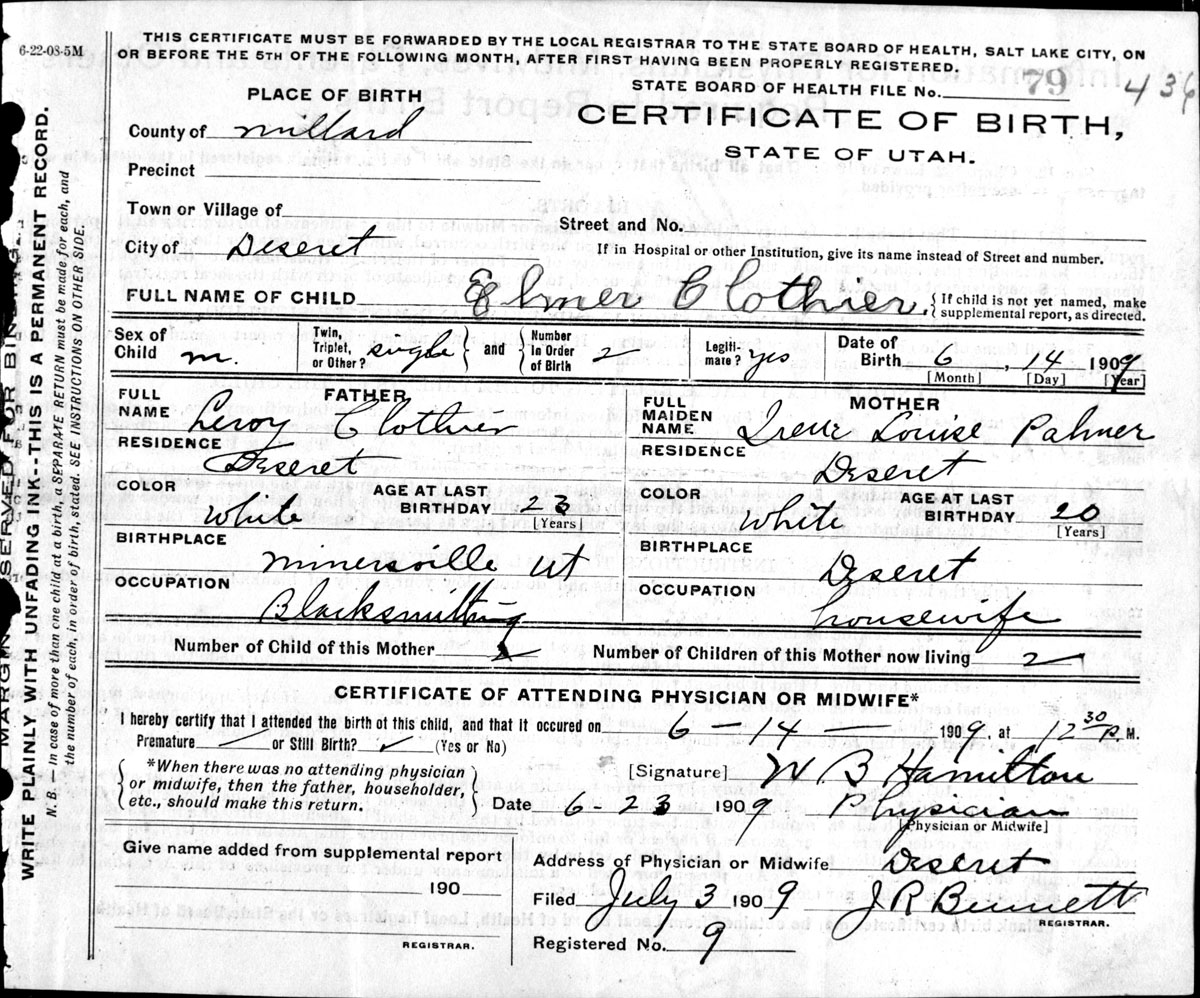 6-22-08-5M
THIS CERTIFICATE MUST BE FORWARDED BY THE LOCAL REGISTRAR TO THE STATE BOARD OF HEALTH, SALT LAKE CITY, ON
OR BEFORE THE 5TH OF THE FOLLOWING MONTH, AFTER FIRST HAVING BEEN PROPERLY REGISTERED.
STATE BOARD OF HEALTH FILE No. 79 436
PLACE OF BIRTH
CERTIFICATE OF BIRTH,
STATE OF UTAH.
County of Millard
Precinct
Town or Village of
Street and No.
City of Deseret
If in Hospital or other Institution, give its name instead of Street and number.
FULL NAME OF CHILD Elmer Clothier { If child is not yet named, make
supplemental report, as directed.
Sex of Child m. Twin, Triplet, or Other? single } and { Number in Order of Birth 2 Legiti-mare? yes Date of Birth 6, 14 1909
[Month] [Day] [Year]
FATHER
FULL NAME Leroy Clothier
RESIDENCE Deseret
COLOR White AGE AT LAST BIRTHDAY 23 [Years]
BIRTHPLACE Minersville Ut
OCCUPATION Blacksmithing
MOTHER
FULL MAIDEN NAME Irene Louise Palmer
RESIDENCE Deseret
COLOR White AGE AT LAST BIRTHDAY 20 [Years]
BIRTHPLACE Deseret
OCCUPATION housewife
Number of Child of this Mother 2 Number of Children of this Mother now living 2
CERTIFICATE OF ATTENDING PHYSICIAN OR MIDWIFE*
I hereby certify that I attended the birth of this child, and that it occured on 6 - 14 - 1909, at 12 30 P. M.
Premature or Still Birth? (Yes or No)
{ *When there was no attending physician
or midwife, then the father, householder,
etc., should make this return. }
[Signature] W B Hamilton
Date 6-23 1909 Physician
[Physician or Midwife]
Give name added from supplemental report
190
REGISTRAR.
Address of Physician or Midwife Deseret
Filed July 3 1909 J R Bennett
REGISTRAR.
Registered No. 9
MARGIN RESERVED FOR BINDING
WRITE PLAINLY WITH UNFADING INK--THIS IS A PERMANENT RECORD.
N. B. — In case of more than one child at a birth, a SEPARATE RETURN must be made for each, and
the number of each, in order of birth, stated. SEE INSTRUCTIONS ON OTHER SIDE.